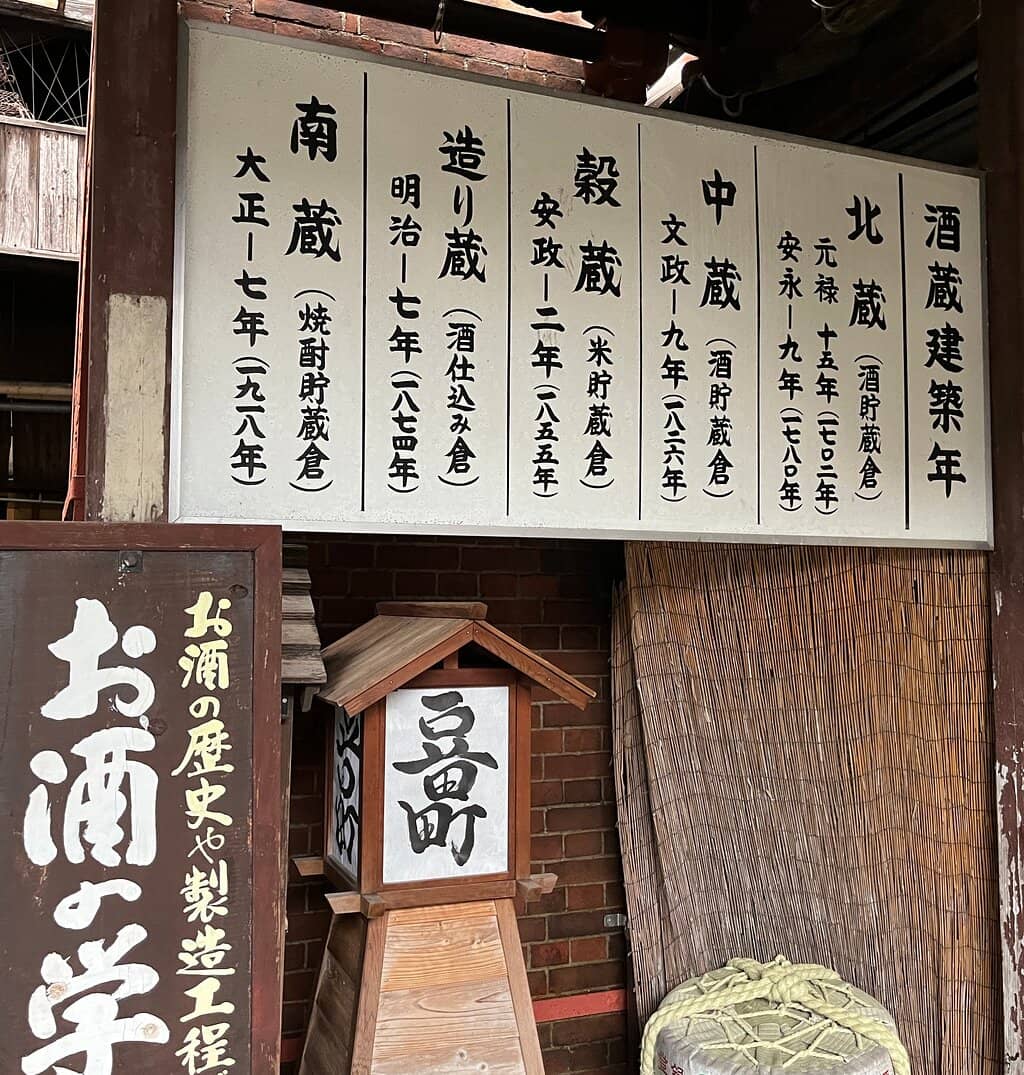 酒蔵建築年
北蔵(酒貯蔵倉)
元禄 十五年(一七〇二年)
安永一九年(一七八〇年)
中蔵(酒貯蔵倉)
文政一九年(一八二六年)
穀蔵(米貯蔵倉)
安政一二年(一八五五年)
造り蔵(酒仕込み倉)
明治一七年(一八七四年)
南蔵(焼酎貯蔵倉)
大正一七年(一九一八年)
豆田町
お酒の歴史や製造工程
お酒の学